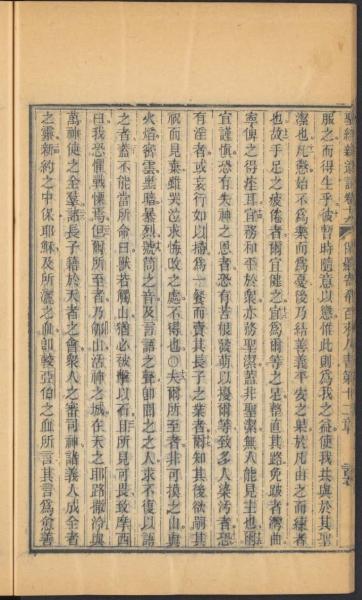 服之而得生乎彼暫時隨意以懲惟此則爲我之益使我共與於其聖
潔也凡懲始不爲樂而爲憂後乃結善義平安之果於凡由之而練者
也故手足之疲倦者爾宜健之宜爲爾等之足整直其路免跛者灣曲
寧俾之得痊耳宜務和平於衆亦務聖潔蓋非聖潔無人能見主也爾
宜謹慎恐有失神之恩者恐有苦根發萌以擾爾等致多人染汚者恐
有淫者或妄行如以掃爲一餐而賣其長子之業者爾知其後欲嗣其
祝而見棄雖哭泣求悔改之處不得也○夫爾所至者非可摸之山與
火焰密雲黑暗暴烈號筒之音及言語之聲卽聞之之人求不復以語
之者蓋不能當所命曰獸若觸山猶必被擊以石且所見可畏致摩西
曰我恐懼戰慄焉但爾所至者乃郇山活神之城在天之耶路撒冷與
萬神使之全羣諸長子籍於天者之會衆人之審司神諸義人成全者
之靈新約之中保耶穌及所灑之血卽較亞伯之血所言其言爲愈善